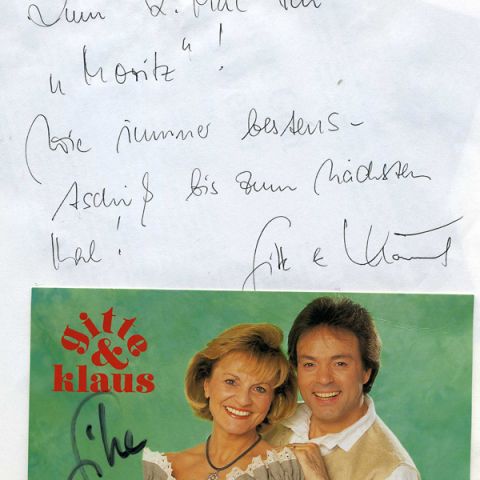 Zum 2. Mal im
"Moritz"!
Wie immer bestens -
Tschüß bis zum nächsten
Mal!
Gitte & Klaus
gitte
&
klaus
Gitte